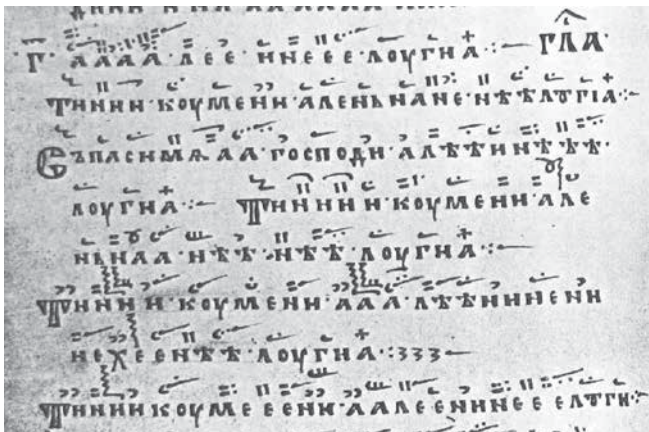 ·Г҃· АААА·ЛЕЕ·ИНЕЕЕ·ЛОУГИА:— ГЛА·
ТИИИИ·КОУМЕНИ·АЛЕНЬНАНЕ·НѢѢЛТГІА:—
СЪПАСИМѦАА·ГОСПОДИ·АЛѢѢИНѢѢѢ·
ЛОУГИА:— ТИИИИИ·КОУМЕНИ·АЛЕ
НЬНАА·НѢѢ·НѢѢ·ЛОУГИА:—
ТИИИИ·КОУМЕНИ·АААЛѢѢИИИНЕНИ
НЕХЕЕНѢѢ·ЛОУГИА:ЗЗЗ—
ТИИИИКОУМЕЕЕНИ·ААЛЕЕНИНЕЕЕЛТГИ:—